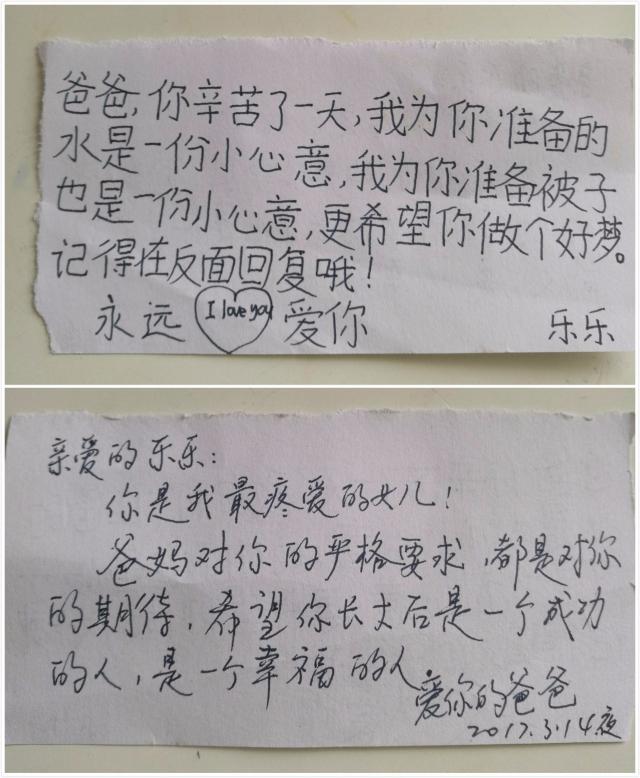 爸爸,你辛苦了一天,我为你准备的
水是一份小心意,我为你准备被子
也是一份小心意,更希望你做个好梦。
记得在反面回复哦!
永远 I love you 爱你 乐乐
亲爱的乐乐:
你是我最疼爱的女儿!
爸妈对你的严格要求,都是对你
的期待,希望你长大后是一个成功
的人,是一个幸福的人.
爱你的爸爸
2017.3.14夜